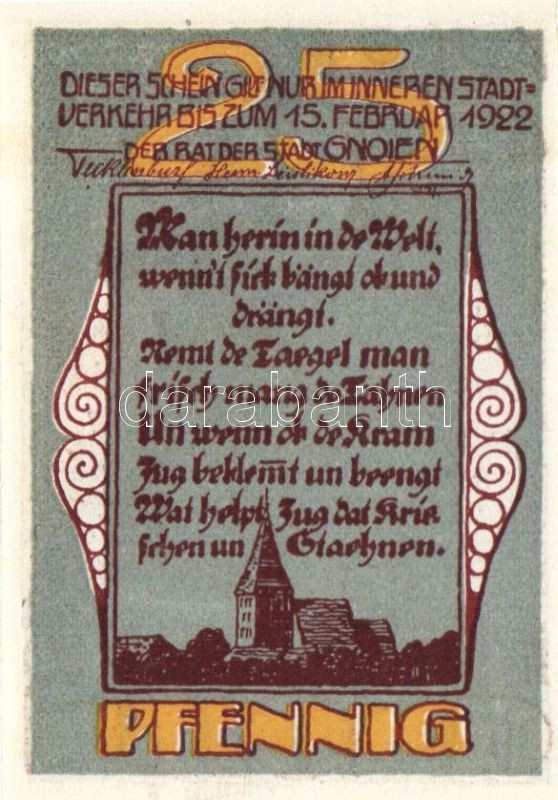 25
DIESER SCHEIN GILT NUR IM INNEREN STADT=
VERKEHR BIS ZUM 15. FEBRUAR 1922
DER RAT DER STADT GNOIEN
Man herin in de Welt,
wenn't sick bängt ok und
drängt.
Nemt de Taegel man
frisch mang de Taehnen
Un wenn ok de Kram
Jug beklemt un beengt
Wat helpt Jug dat Krie=
schen un Staehnen.
PFENNIG
darabanth